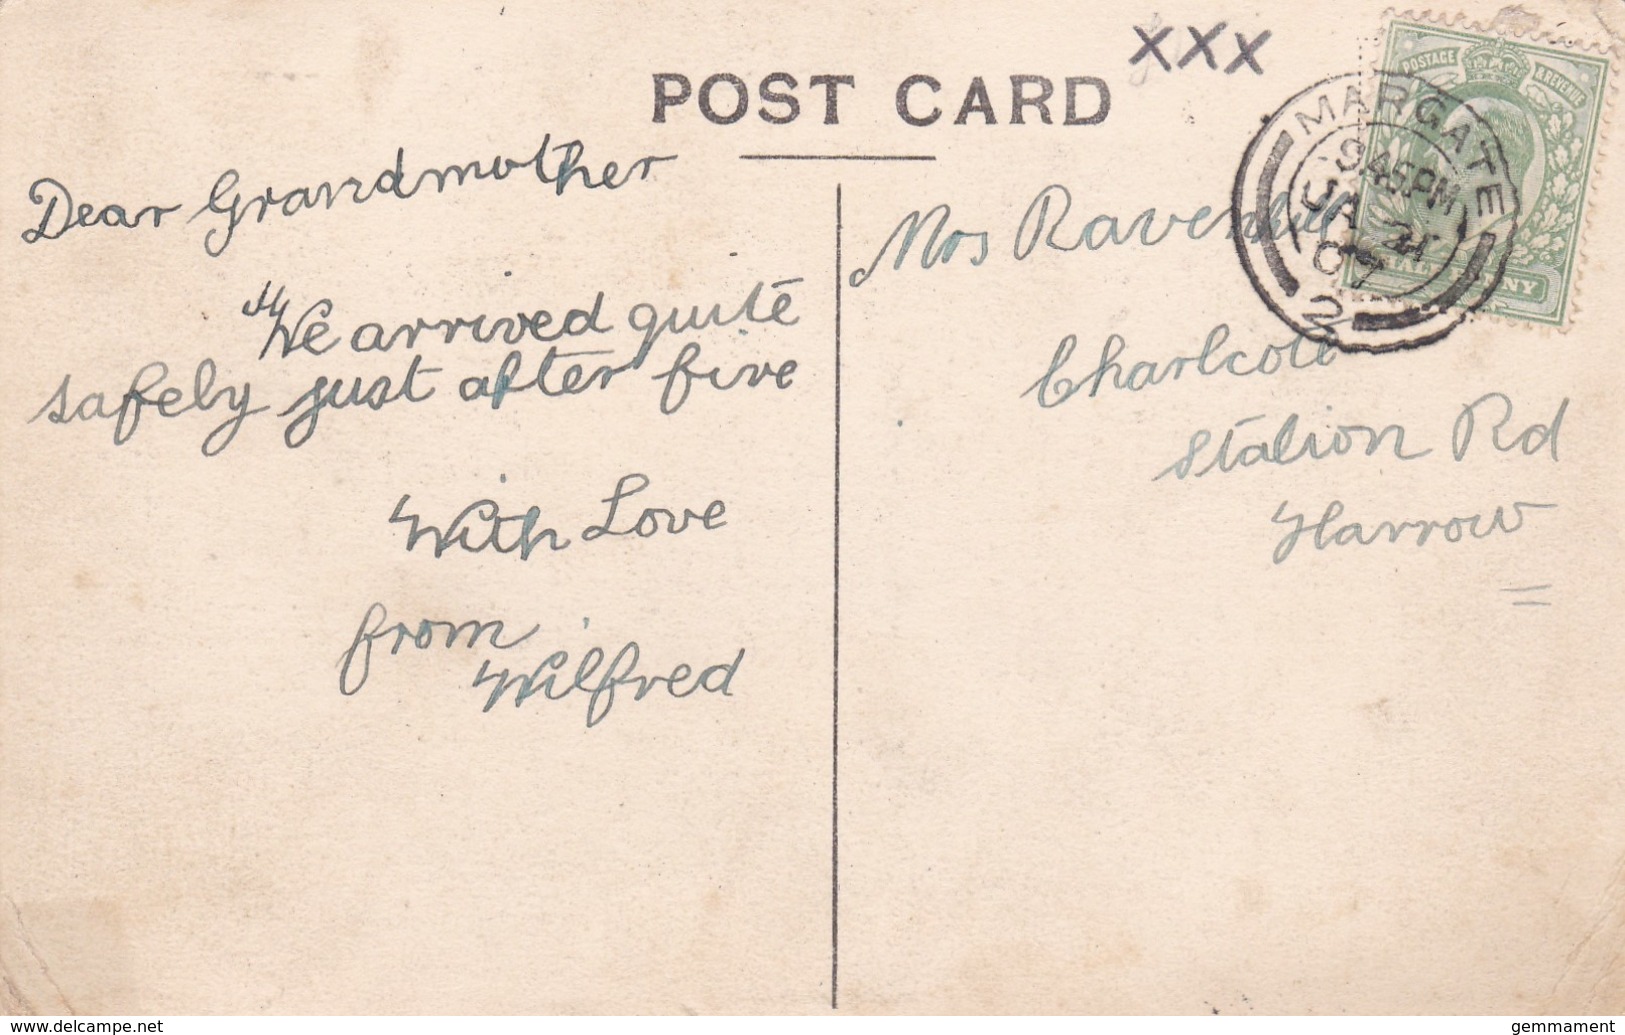 POST CARD
xxx
Dear Grandmother
We arrived quite
safely just after five
With Love
from
Wilfred
Mrs Ravenhill
Charlcote
Station Rd
Harrow
MARGATE
9.45PM
JA 21
07
2
POSTAGE & REVENUE
www.delcampe.net
gemmament